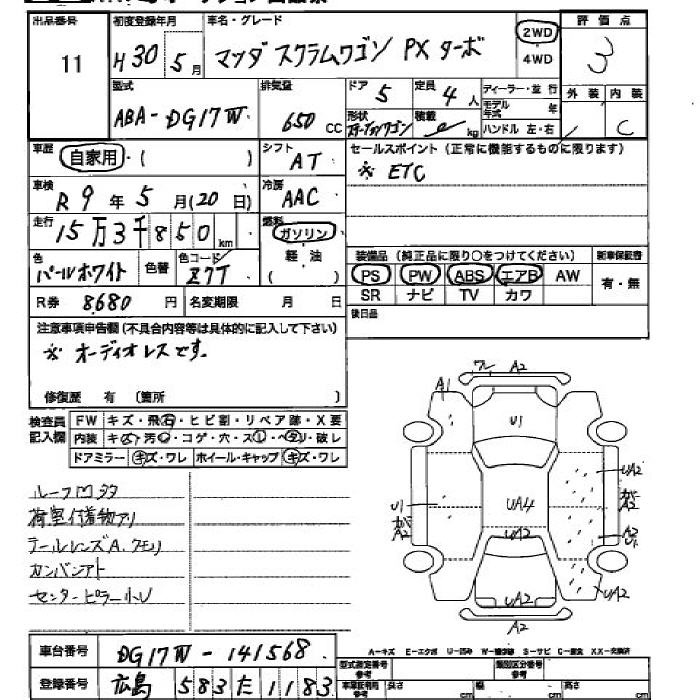 出品番号 初度登録年月 車名・グレード 2WD 評価点
11 H30 5月 マツダ スクラムワゴン PX ターボ 4WD 3
型式 排気量 ドア 5 定員 4人 ディーラー・並行 外装 内装
ABA-DG17W 650 CC 形状 ステーションワゴン 積載 kg モデル年式 年 ハンドル 左・右 C
車歴 自家用・( ) シフト AT セールスポイント(正常に機能するものに限ります)
※ ETC
車検 R9年5月(20日) 冷房 AAC
走行 15万3千850km 燃料 ガソリン 軽油 ( )
色 パールホワイト 色替 色コード Z7T 装備品(純正品に限り○をつけてください) 新車保証書
PS PW ABS エアB AW 有・無
R券 8680円 名変期限 月 日 SR ナビ TV カワ
注意事項申告欄(不具合内容等は具体的に記入して下さい) 後日品
※ オーディオレスです。
修復歴 有 (箇所 )
検査員記入欄 FW キズ・飛石・ヒビ割・リペア跡・X要
内装 キズ・汚・コゲ・穴・スレ・ベタリ・破レ
ドアミラー キズ・ワレ ホイール・キャップ キズ・ワレ
ワレ A2
A1
U1
UA2
U1 UA4
A2 UA2 A2
UA2 UA2
A2
ルーフ凹多タ
荷室付着物アリ
テールレンズA、クモリ
カンバンアト
センターピラー小U
車台番号 DG17W-141568
A-キズ E-エクボ U-凹み W-補修跡 S-サビ C-腐食 XX-交換済
登録番号 広島 583 た 1183
型式指定番号 参考 類別区分番号 参考
車庫証明用 参考 長さ cm 幅 cm 高さ cm